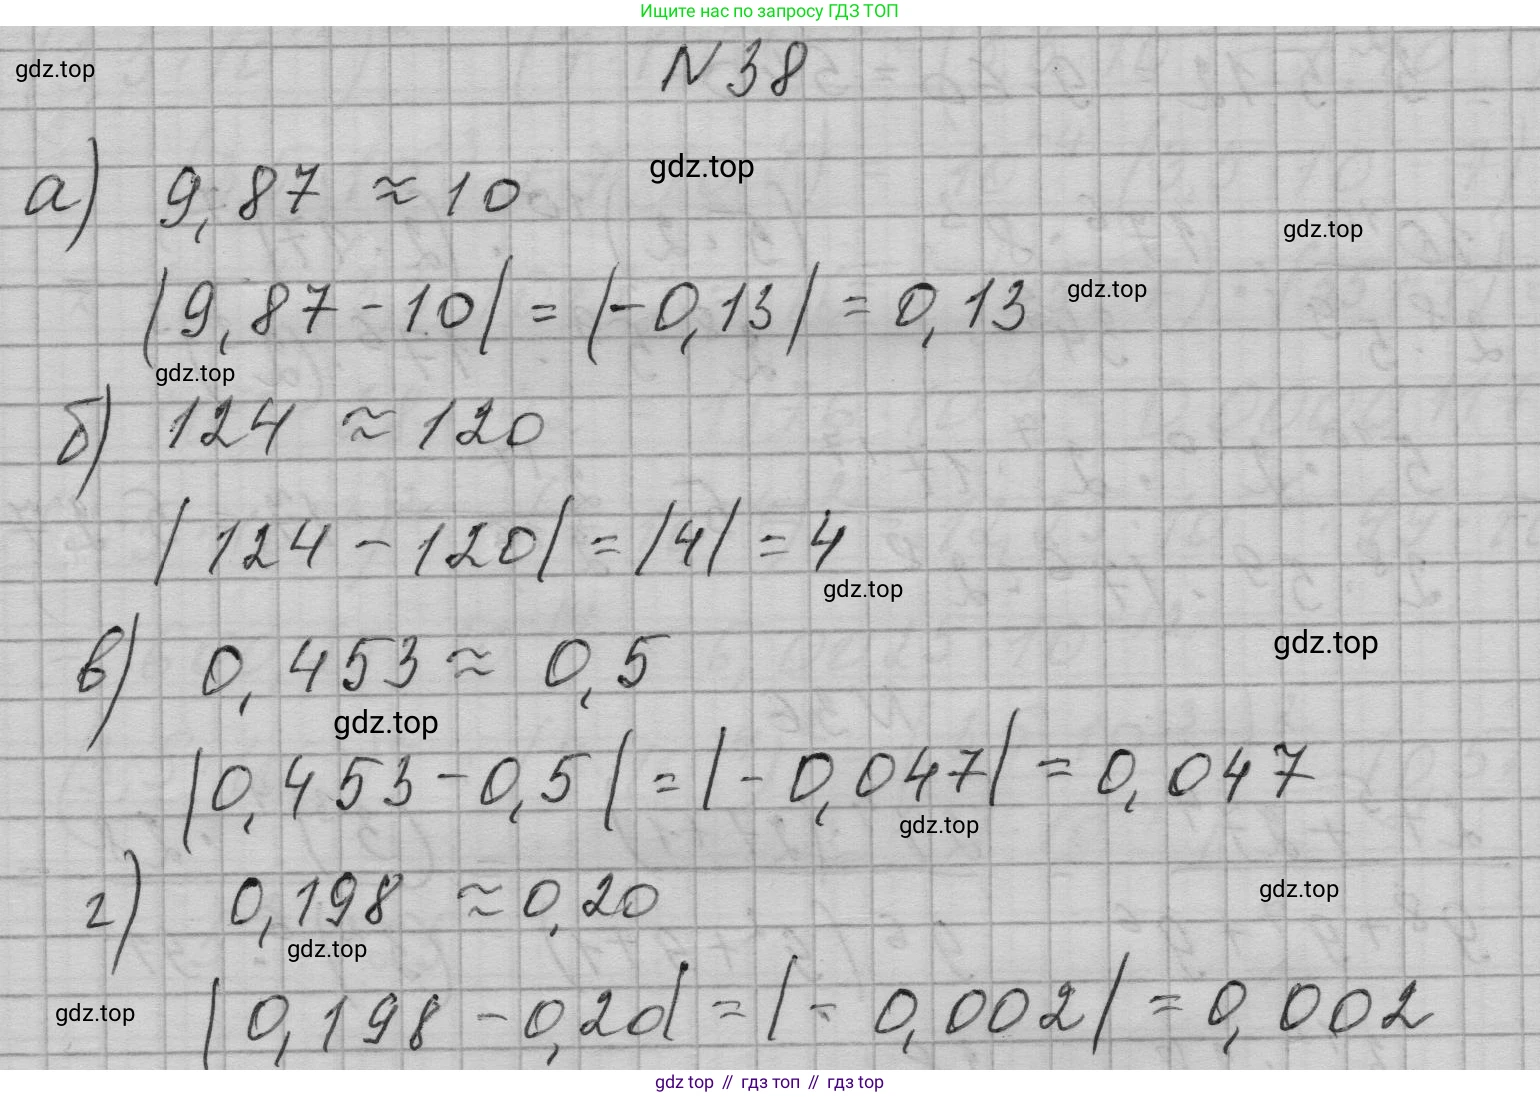 Ищите нас по запросу ГДЗ ТОП
N 38
gdz.top
а) 9,87 ≈ 10
gdz.top
gdz.top
|9,87 - 10| = |-0,13| = 0,13
gdz.top
gdz.top
б) 124 ≈ 120
|124 - 120| = |4| = 4
gdz.top
в) 0,453 ≈ 0,5
gdz.top
gdz.top
|0,453 - 0,5| = |-0,047| = 0,047
gdz.top
г) 0,198 ≈ 0,20
gdz.top
gdz.top
|0,198 - 0,20| = |-0,002| = 0,002
gdz.top
gdz top // гдз топ // gdz top